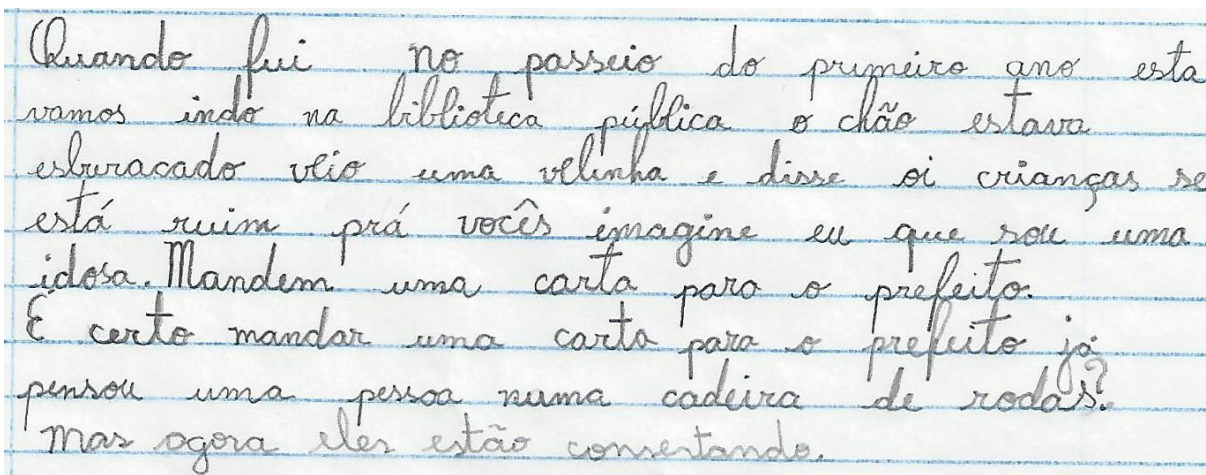 Quando fui no passeio do primeiro ano esta
vamos indo na biblioteca pública o chão estava
esburacado veio uma velinha e disse oi crianças se
está ruim prá vocês imagine eu que sou uma
idosa. Mandem uma carta para o prefeito.
É certo mandar uma carta para o prefeito já
pensou uma pessoa numa cadeira de rodas?
Mas agora eles estão consertando.